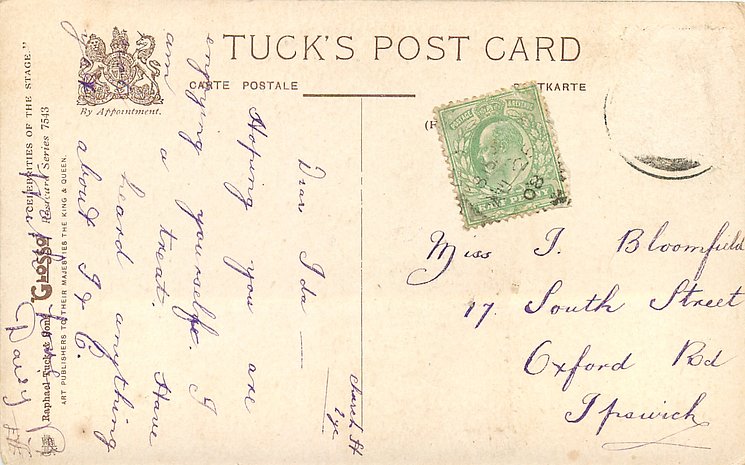 TUCK'S POST CARD
CARTE POSTALE
By Appointment.
"CELEBRITIES OF THE STAGE."
"GLOSSO" Postcard Series 7543
Raphael Tuck & Sons
ART PUBLISHERS TO THEIR MAJESTIES THE KING & QUEEN.
08
Church St
Eye
Dear Ida —
Hoping you are
enjoying yourself. I
am a treat. Have
heard anything
about I & C.
Daisy
Miss I. Bloomfield
17. South Street
Oxford Rd
Ipswich